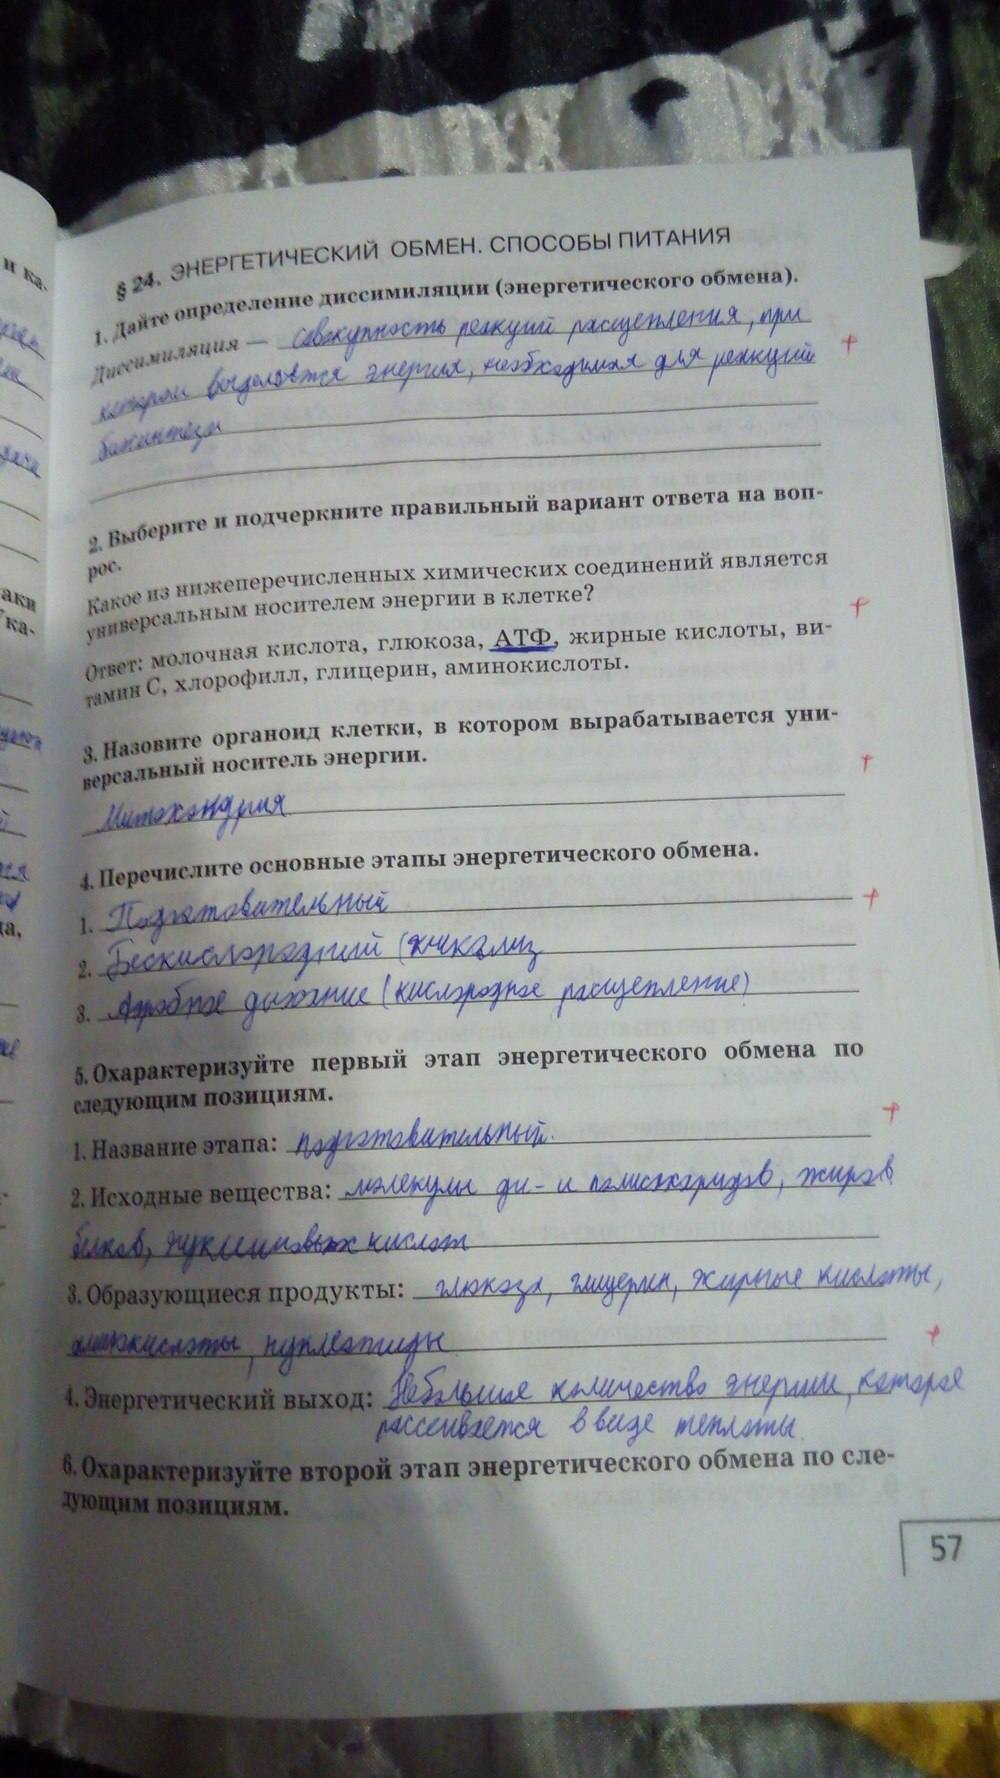 и ка-
§ 24. ЭНЕРГЕТИЧЕСКИЙ ОБМЕН. СПОСОБЫ ПИТАНИЯ
1. Дайте определение диссимиляции (энергетического обмена).
Диссимиляция — совокупность реакций расщепления, при
котором выделяется энергия, необходимая для реакций
+
2. Выберите и подчеркните правильный вариант ответа на воп-
рос.
Какое из нижеперечисленных химических соединений является
универсальным носителем энергии в клетке?
+
Ответ: молочная кислота, глюкоза, АТФ, жирные кислоты, ви-
тамин С, хлорофилл, глицерин, аминокислоты.
3. Назовите органоид клетки, в котором вырабатывается уни-
версальный носитель энергии.
+
Митохондрия
4. Перечислите основные этапы энергетического обмена.
1. Подготовительный
+
2. Бескислородный
3. Аэробное дыхание (кислородное расщепление)
5. Охарактеризуйте первый этап энергетического обмена по
следующим позициям.
+
1. Название этапа: подготовительный.
2. Исходные вещества: молекулы ди- и полисахаридов, жиров
белков, нуклеиновых кислот
3. Образующиеся продукты: глюкоза, глицерин, жирные кислоты,
аминокислоты, нуклеотиды
+
4. Энергетический выход: Небольшое количество энергии, которое
рассеивается в виде теплоты.
6. Охарактеризуйте второй этап энергетического обмена по сле-
дующим позициям.
57